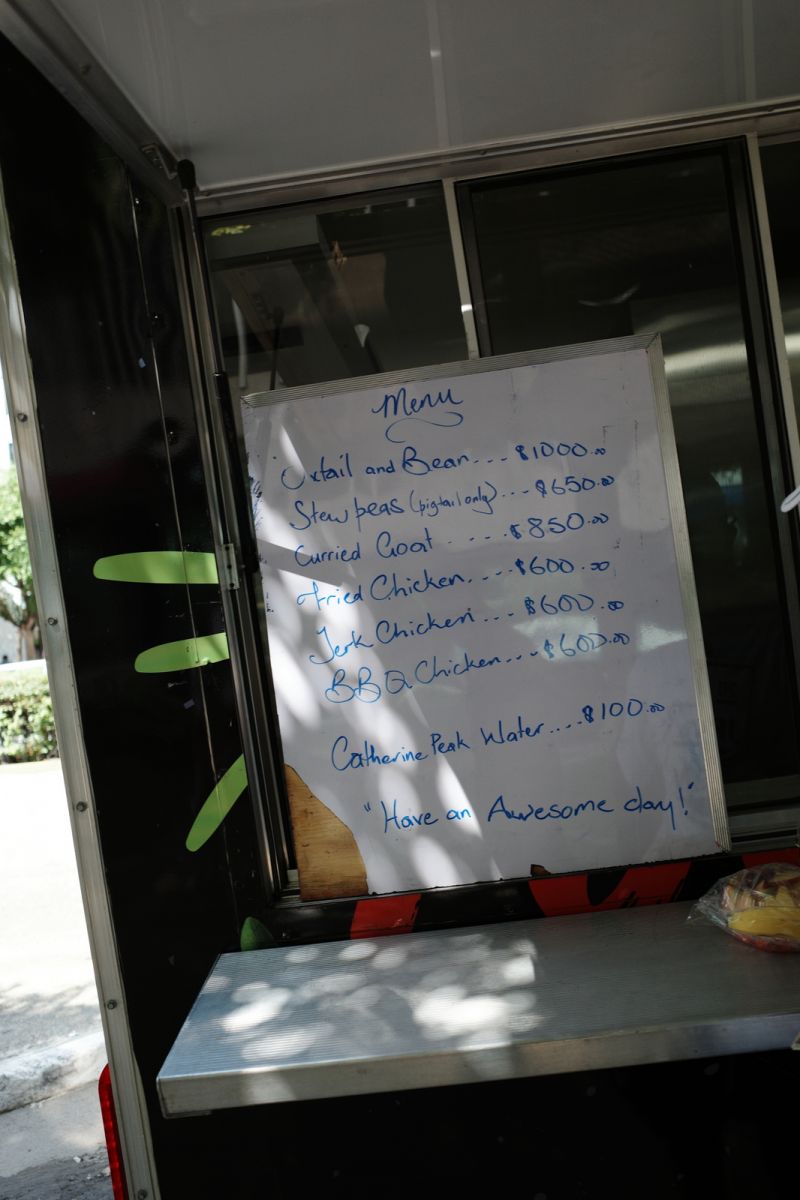 Menu
Oxtail and Bean... $1000.00
Stew peas (pigtail only)... $650.00
Curried Goat ..... $850.00
Fried Chicken.... $600.00
Jerk Chicken ... $600.00
BBQ Chicken... $600.00
Catherine Peak Water....$100.00
"Have an Awesome day!"